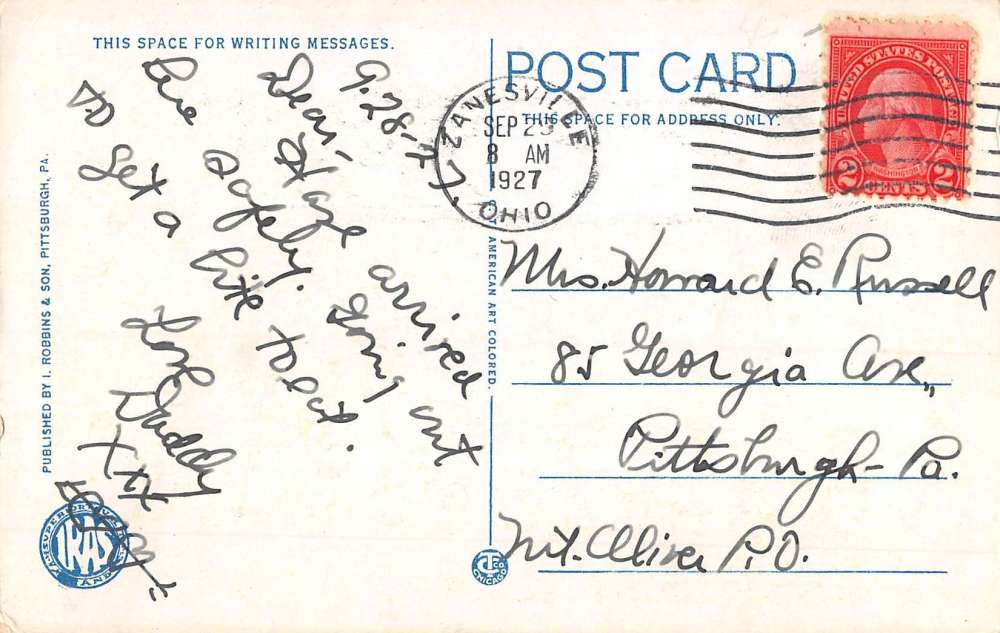 THIS SPACE FOR WRITING MESSAGES.
9-28-27.
Dear,
Have arrived
safely. Going out
to get a bite to eat.
Love
Daddy
XXX
PUBLISHED BY I. ROBBINS & SON, PITTSBURGH, PA.
AMERICAN ART COLORED.
C.T. CO.
CHICAGO
POST CARD
THIS SPACE FOR ADDRESS ONLY.
ZANESVILLE
SEP 29
8 AM
1927
OHIO
UNITED STATES POSTAGE
WASHINGTON
2 CENTS 2
Mrs. Howard E. Russell
85 Georgia Ave.,
Pittsburgh - Pa.
Mt. Oliver P.O.
IRAS